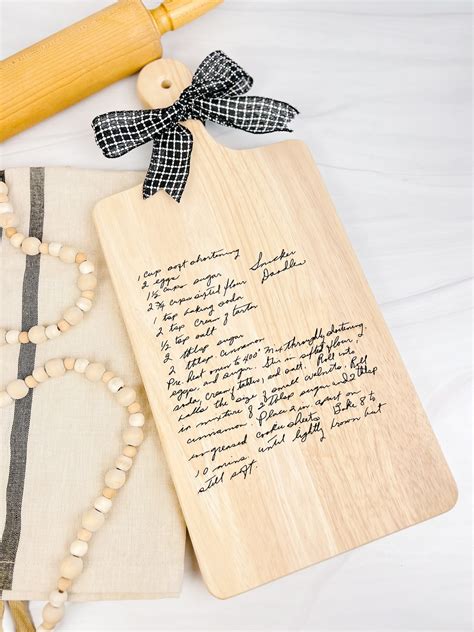 1 cup soft shortening
2 eggs
1½ cups sugar
Snicker
Doodles
2¾ cups sifted flour
1 tsp baking soda
2 tsp cream of tartar
½ tsp salt
2 tblsp sugar
2 tblsp cinnamon
Pre heat oven to 400° Mix throughly shortening,
eggs, and sugar. Stir in sifted flour,
soda, cream of tarter, and salt. Roll into
balls the size of small walnuts. Roll
in mixture of 2 tblsp sugar and 2 tblsp
cinnamon. Place 2 in. apart on
ungreased cookie sheets. Bake 8 to
10 mins. until lightly brown but
still soft.